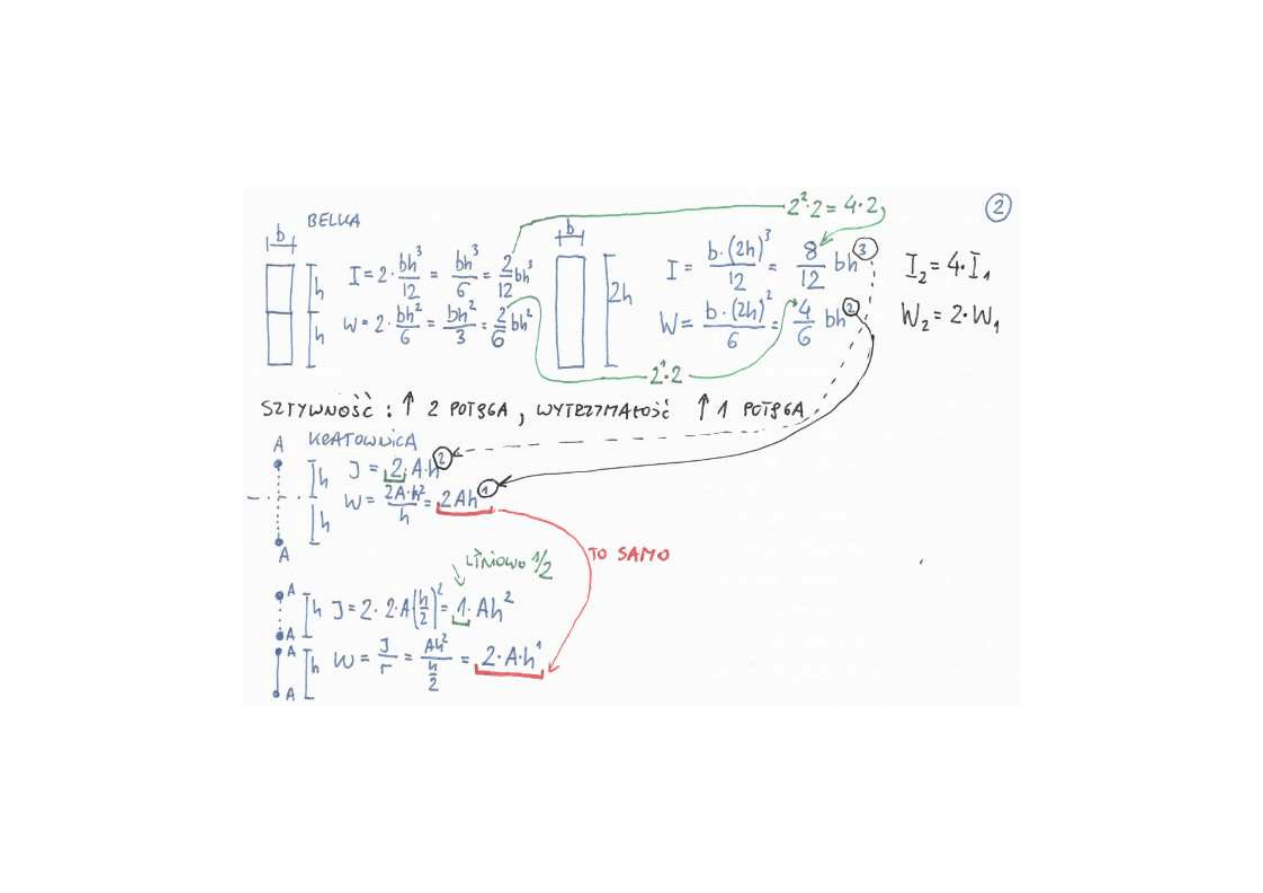 2
BELKA
b
h
h
I = 2 · bh³/12 = bh³/6 = 2/12 bh³
W = 2 · bh²/6 = bh²/3 = 2/6 bh²
b
2h
2² · 2 = 4 · 2
I = b · (2h)³/12 = 8/12 bh³
W = b · (2h)²/6 = 4/6 bh²
2¹ · 2
I₂ = 4 · I₁
W₂ = 2 · W₁
SZTYWNOŚĆ : ↑ 2 POTĘGA , WYTRZYMAŁOŚĆ ↑ 1 POTĘGA
KRATOWNICA
A
h
h
A
J = 2 · A · h²
W = 2A · h²/h = 2Ah¹
TO SAMO
LINIOWO 1/2
A
A
h
J = 2 · 2 · A(h/2)² = 1 · Ah²
A
A
h
W = J/r = Ah²/(h/2) = 2 · A · h¹